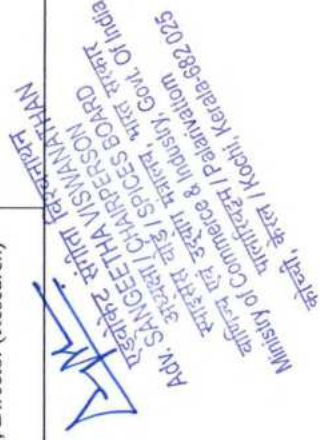 Director (Research)
एडवोकेट संगीता विश्वनाथन
Adv. SANGEETHA VISWANATHAN
अध्यक्षा / CHAIRPERSON
स्पाइसेस बोर्ड / SPICES BOARD
वाणिज्य एवं उद्योग मंत्रालय, भारत सरकार
Ministry of Commerce & Industry, Govt. Of India
पालारिवट्टम / Palarivattom
कोच्ची, केरल / Kochi, Kerala-682 025